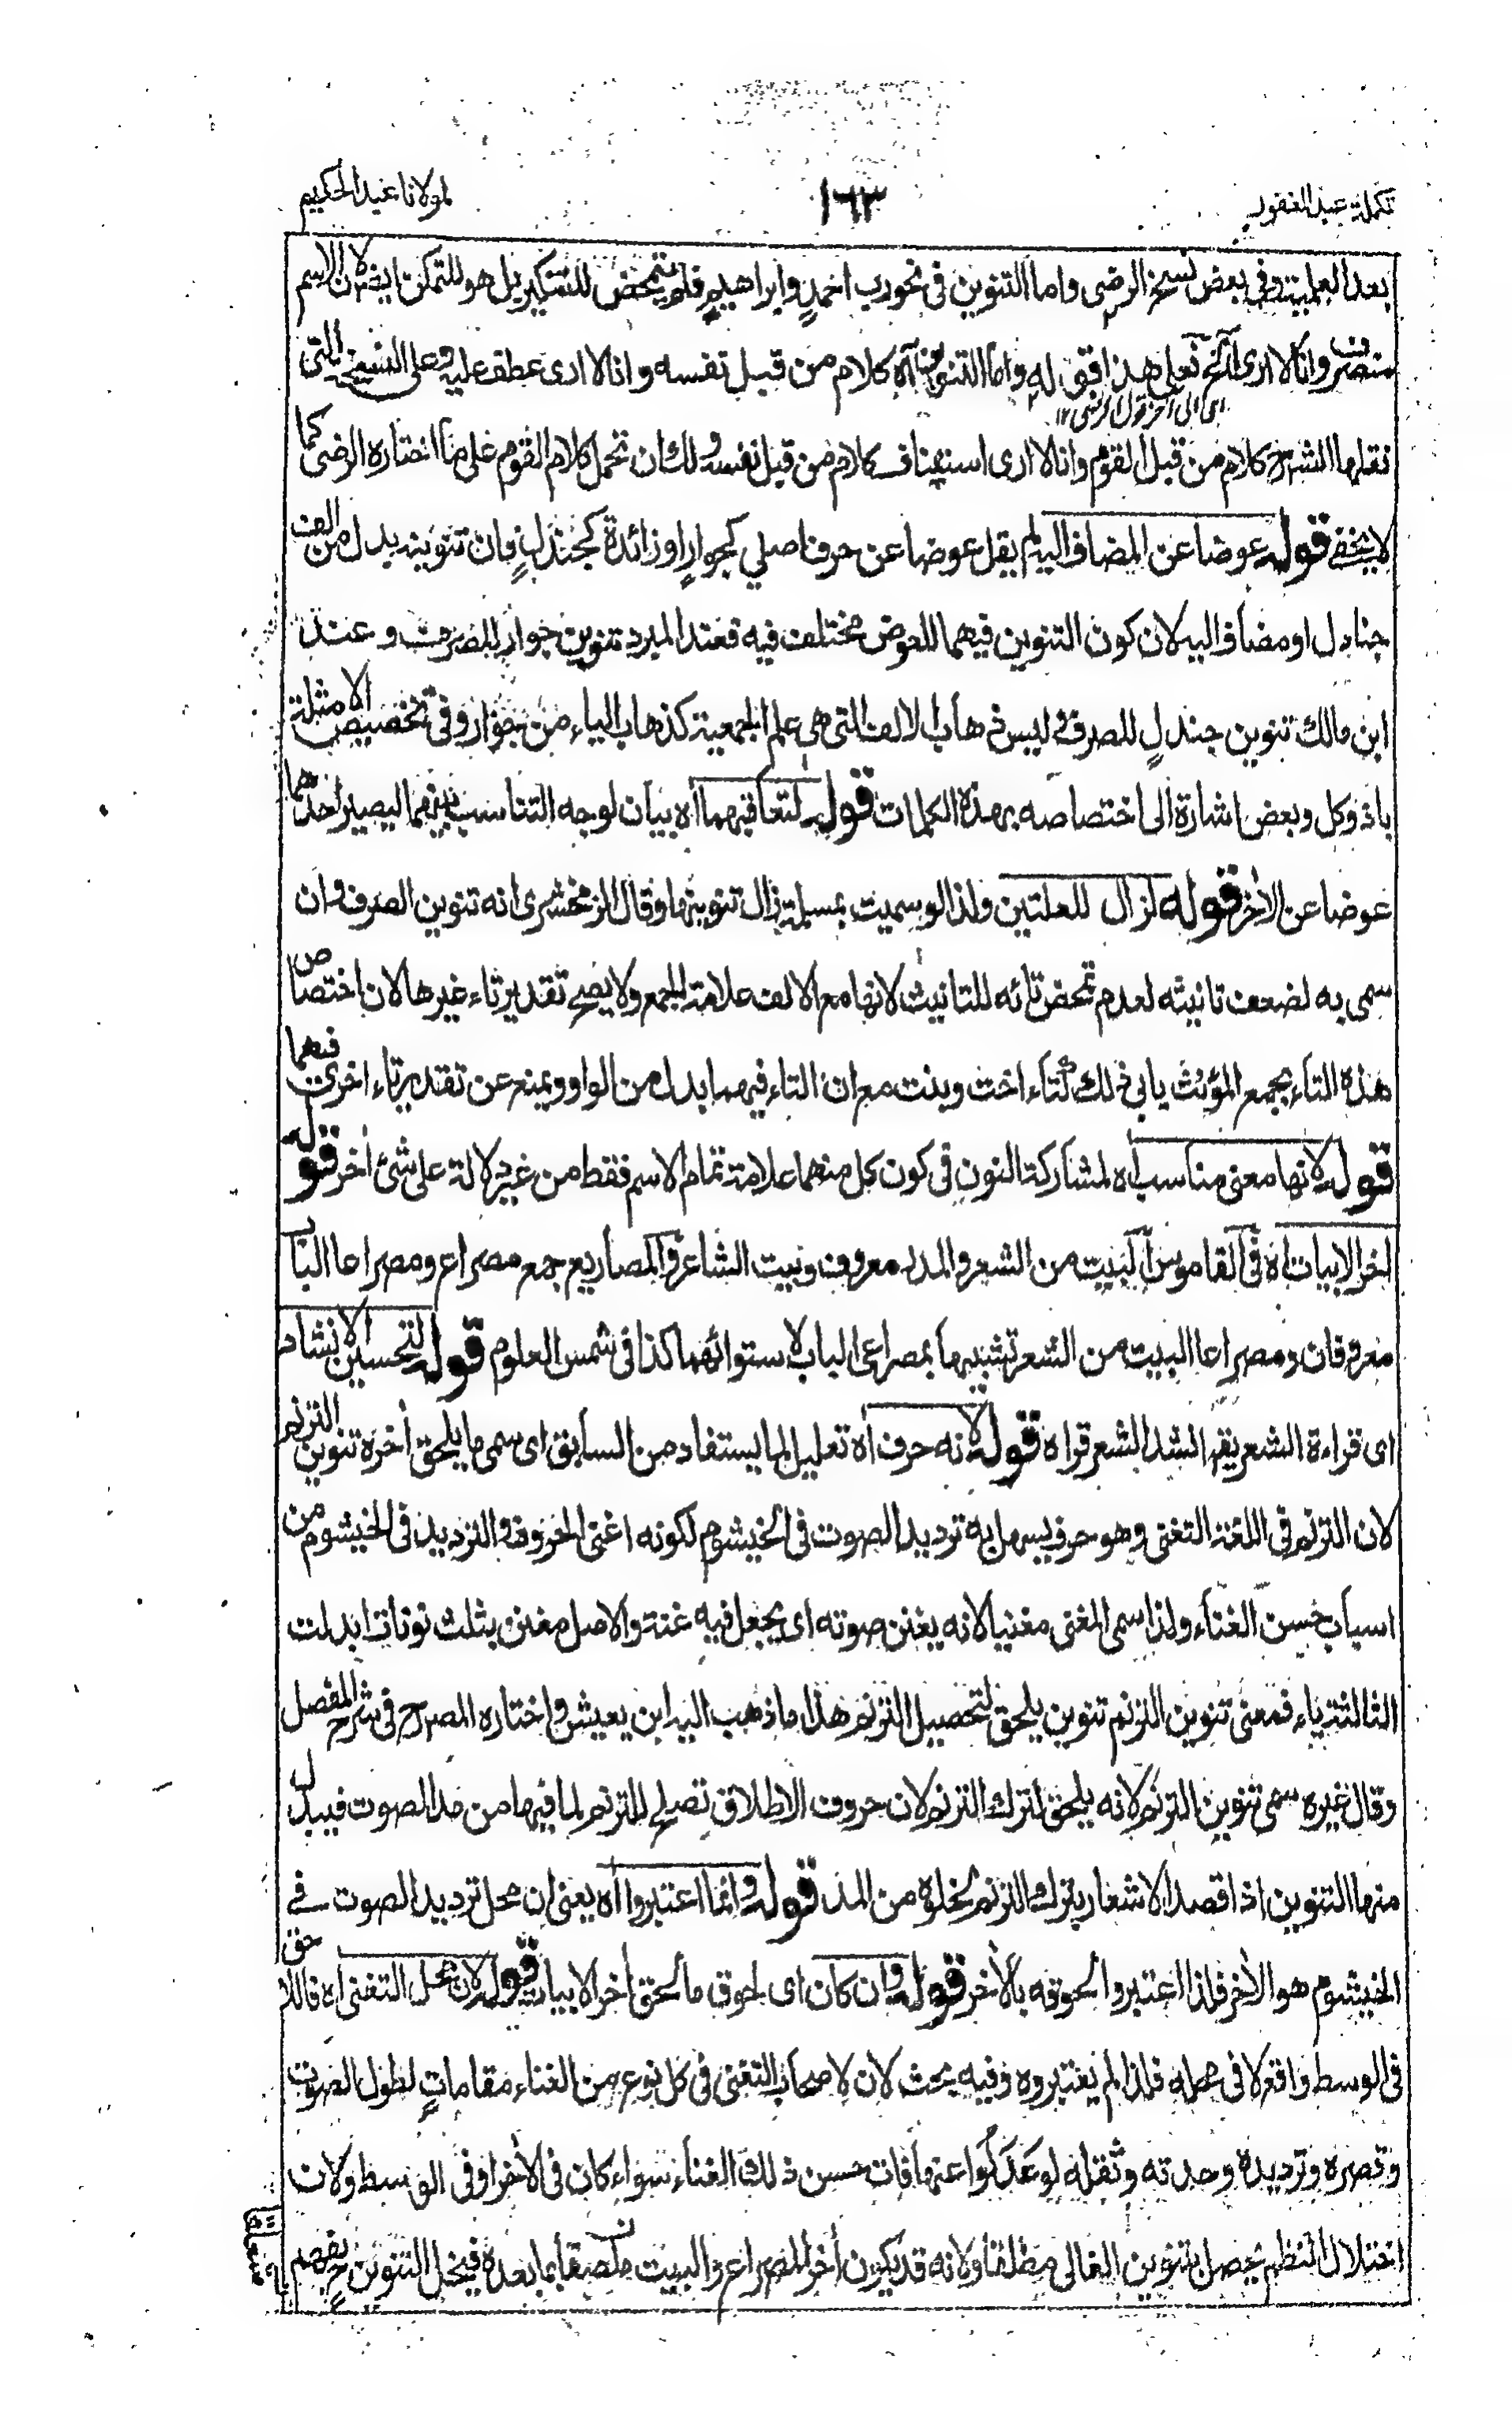 تكملة عبد الغفور
١٦٣
لمولانا عبد الحكيم
بعد العلمية وفى بعض نسخ الرضى واما التنوين فى نحو رب احمدٍ وابراهيمٍ فلم يتمحض للتنكير بل هو للتمكن ايضا لان الاسم
منصرف وانا لا ارى الخ فعلى هذا فقوله واما التنوين آه كلام من قبل نفسه وانا لا ارى عطف عليه وعلى النسخ التى
اى الى آخر قول الرضى ١٢
نقلها الشرح كلام من قبل القوم وانا لا ارى استيناف كلام من قبل نفسه ولك ان تحمل كلام القوم على ما اختاره الرضى كما
لا يخفى قوله عوضا عن المضاف اليه لم يقل عوضا عن حرف اصلي كجوارٍ او زائدة كجندلٍ فان تنوينه بدل من الف
جنادل او مضاف اليه لان كون التنوين فيهما للعوض مختلف فيه فعند المبرد تنوين جوار للصرف وعند
ابن مالك تنوين جندلٍ للصرف وليس ذهاب الالف التى هى علم الجمعية كذهاب الياء من جوار وفى تخصيص الامثلة
باذ وكل وبعض اشارة الى اختصاصه بهذه الكلمات قوله لتعاقبهما آه بيان لوجه التناسب بينهما ليصير احدهما
عوضا عن الاخر قوله لزال للعلتين ولذا لو سميت بمسلمة زال تنوينها وقال الزمخشرى انه تنوين الصرف وان
سمى به لضعف تانيثه لعدم تمحض تائه للتانيث لانها مع الالف علامة للجمع ولا يصح تقدير تاء غيرها لان اختصاص
هذه التاء بجمع المؤنث يابى ذلك كتاء اخت وبنت مع ان التاء فيهما بدل من الواو ويمنع عن تقدير تاء اخرى فيهما
قوله لانها معنى مناسب آه لمشاركة النون فى كون كل منهما علامة تمام الاسم فقط من غير دلالة على شئ اخر قوله
اخر الابيات آه فى القاموس البيت من الشعر والمدر معروف وبيت الشاعر والمصاريع جمع مصراع ومصراعا الباب
معروفان ومصراعا البيت من الشعر تشبيها بمصراعى الباب لاستوائهما كذا فى شمس العلوم قوله لتحسين الانشاد
اى قراءة الشعر يقہ انشد الشعر قراه قوله لانه حرف آه تعليل لما يستفاد من السابق اى سمى ما يلحق اخره تنوين الترنم
لان الترنم فى اللغة التغنى وهو حرف يسهل به ترديد الصوت فى الخيشوم لكونه اغنى الحروف والترديد فى الخيشوم من
اسباب حسن الغناء ولذا سمى المغنى مغنيا لانه يغنن صوته اى يجعل فيه غنة والاصل مغنن بثلث نونات ابدلت
الثالثة ياء فمعنى تنوين الترنم تنوين يلحق لتحصيل الترنم هذا ما ذهب اليه ابن يعيش واختاره المصرح فى شرح المفصل
وقال غيره سمى تنوين الترنم لانه يلحق لترك الترنم لان حروف الاطلاق تصلح للترنم لما فيها من مد الصوت فيبدل
منها التنوين اذا قصد الاشعار بترك الترنم لخلوه من المد قوله وانما اعتبروا آه يعنى ان محل ترديد الصوت فى
الخيشوم هو الاخر فلذا اعتبروا لحوقه بالاخر قوله وان كان اى لحوق ما لحق اخر الابيات قوله لان محل التغنى آه فاللاحق
فى الوسط واقع لا فى محله فلذا لم يعتبروه وفيه بحث لان لاصحاب التغنى فى كل نوع من الغناء مقاماتٍ لطول الصوت
وقصره وترديده وحدته وثقله لو عَدَلُوا عنها فات حسن ذلك الغناء سواء كان فى الاخر او فى الوسط ولان
اختلال النظم يحصل بتنوين الغالى مطلقا ولانه قد يكون اخر المصراع والبيت ملصقا بما بعده فيخل التنوين ح بفهم